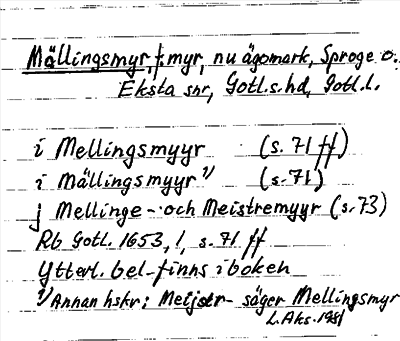 Mällingsmyr, f. myr, nu ägomark, Sproge o.
Eksta snr, Gotl.s.hd, Gotl.l.
i Mellingsmyyr (s. 71 ff)
i Mällingsmyyr 1) (s. 71)
j Mellinge- och Meistremyyr (s. 73)
Rb Gotl. 1653, 1, s. 71 ff
Ytterl. bel. finns i boken
1) Annan hskr: Meijstr- säger Mellingsmyr
L. Aks. 1981